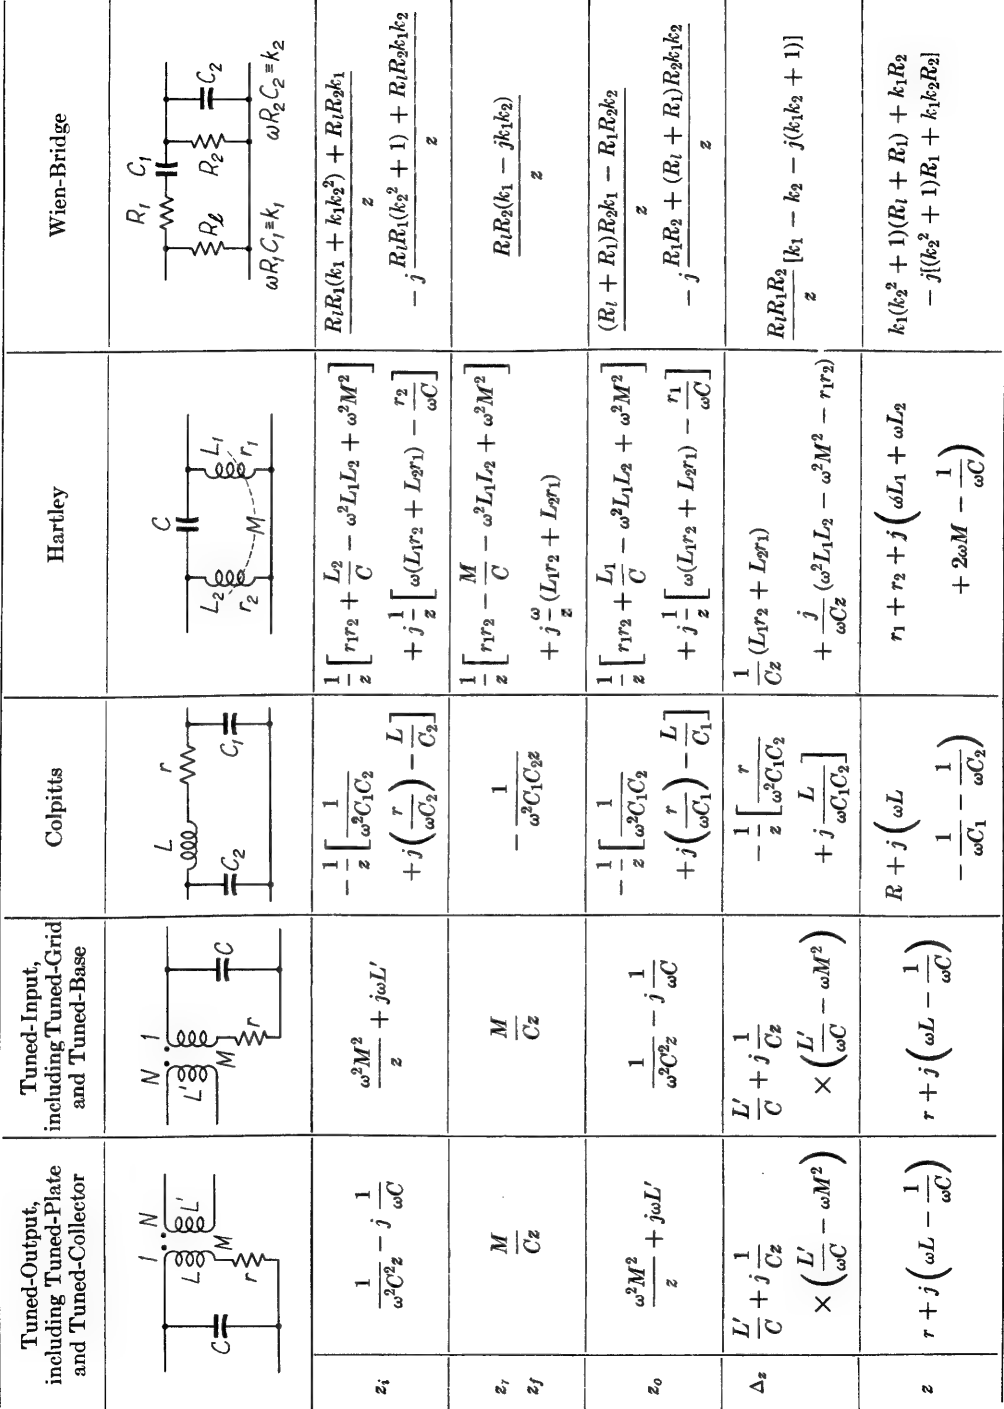 Tuned-Output,
including Tuned-Plate
and Tuned-Collector
Tuned-Input,
including Tuned-Grid
and Tuned-Base
Colpitts
Hartley
Wien-Bridge
C
1 N
L L'
M
r
N 1
L' M
r
C
L r
C₂ C₁
C
L₂ L₁
r₂ M r₁
R₁ C₁
Rℓ R₂ C₂
ωR₁C₁≡k₁ ωR₂C₂≡k₂
zᵢ
1/(ω²C²z) − j 1/(ωC)
ω²M²/z + jωL'
−1/z [1/(ω²C₁C₂)
+ j(r/(ωC₂)) − L/C₂]
1/z [r₁r₂ + L₂/C − ω²L₁L₂ + ω²M²]
+ j 1/z [ω(L₁r₂ + L₂r₁) − r₂/(ωC)]
RₗR₁(k₁ + k₁k₂²) + RₗR₂k₁ / z
− j RₗR₁(k₂² + 1) + RₗR₂k₁k₂ / z
zᵣ
z_f
M/(Cz)
M/(Cz)
− 1/(ω²C₁C₂z)
1/z [r₁r₂ − M/C − ω²L₁L₂ + ω²M²]
+ j ω/z (L₁r₂ + L₂r₁)
RₗR₂(k₁ − jk₁k₂) / z
zₒ
ω²M²/z + jωL'
1/(ω²C²z) − j 1/(ωC)
−1/z [1/(ω²C₁C₂)
+ j(r/(ωC₁)) − L/C₁]
1/z [r₁r₂ + L₁/C − ω²L₁L₂ + ω²M²]
+ j 1/z [ω(L₁r₂ + L₂r₁) − r₁/(ωC)]
(Rₗ + R₁)R₂k₁ − R₁R₂k₂ / z
− j R₁R₂ + (Rₗ + R₁)R₂k₁k₂ / z
Δ_z
L'/C + j 1/(Cz)
× (L'/(ωC) − ωM²)
L'/C + j 1/(Cz)
× (L'/(ωC) − ωM²)
−1/z [r/(ω²C₁C₂)
+ j L/(ωC₁C₂)]
1/(Cz) (L₁r₂ + L₂r₁)
+ j/(ωCz) (ω²L₁L₂ − ω²M² − r₁r₂)
RₗR₁R₂/z [k₁ − k₂ − j(k₁k₂ + 1)]
z
r + j(ωL − 1/(ωC))
r + j(ωL − 1/(ωC))
R + j(ωL
− 1/(ωC₁) − 1/(ωC₂))
r₁ + r₂ + j(ωL₁ + ωL₂
+ 2ωM − 1/(ωC))
k₁(k₂² + 1)(Rₗ + R₁) + k₁R₂
− j[(k₂² + 1)R₁ + k₁k₂R₂]